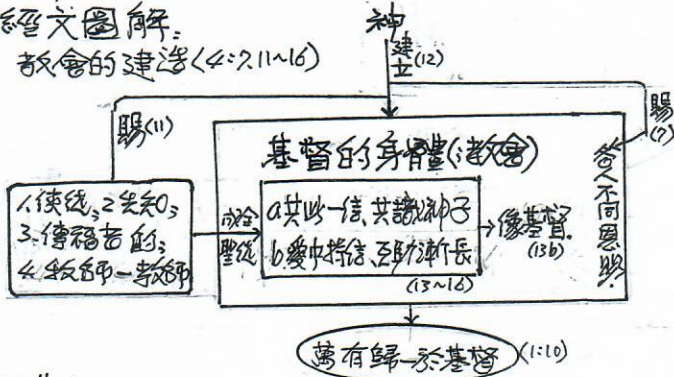 經文圖解:
教會的建造(4:7,11~16)
神
建立(12)
賜(11)
賜(7)
各人不同恩賜
基督的身體(教會)
1.使徒;2.先知;
3.傳福音的;
4.牧師—教師
成全聖徒
a.共此一信、共識神子
b.愛中持信、互助漸長
(13~16)
像基督
(13b)
萬有歸一於基督 (1:10)